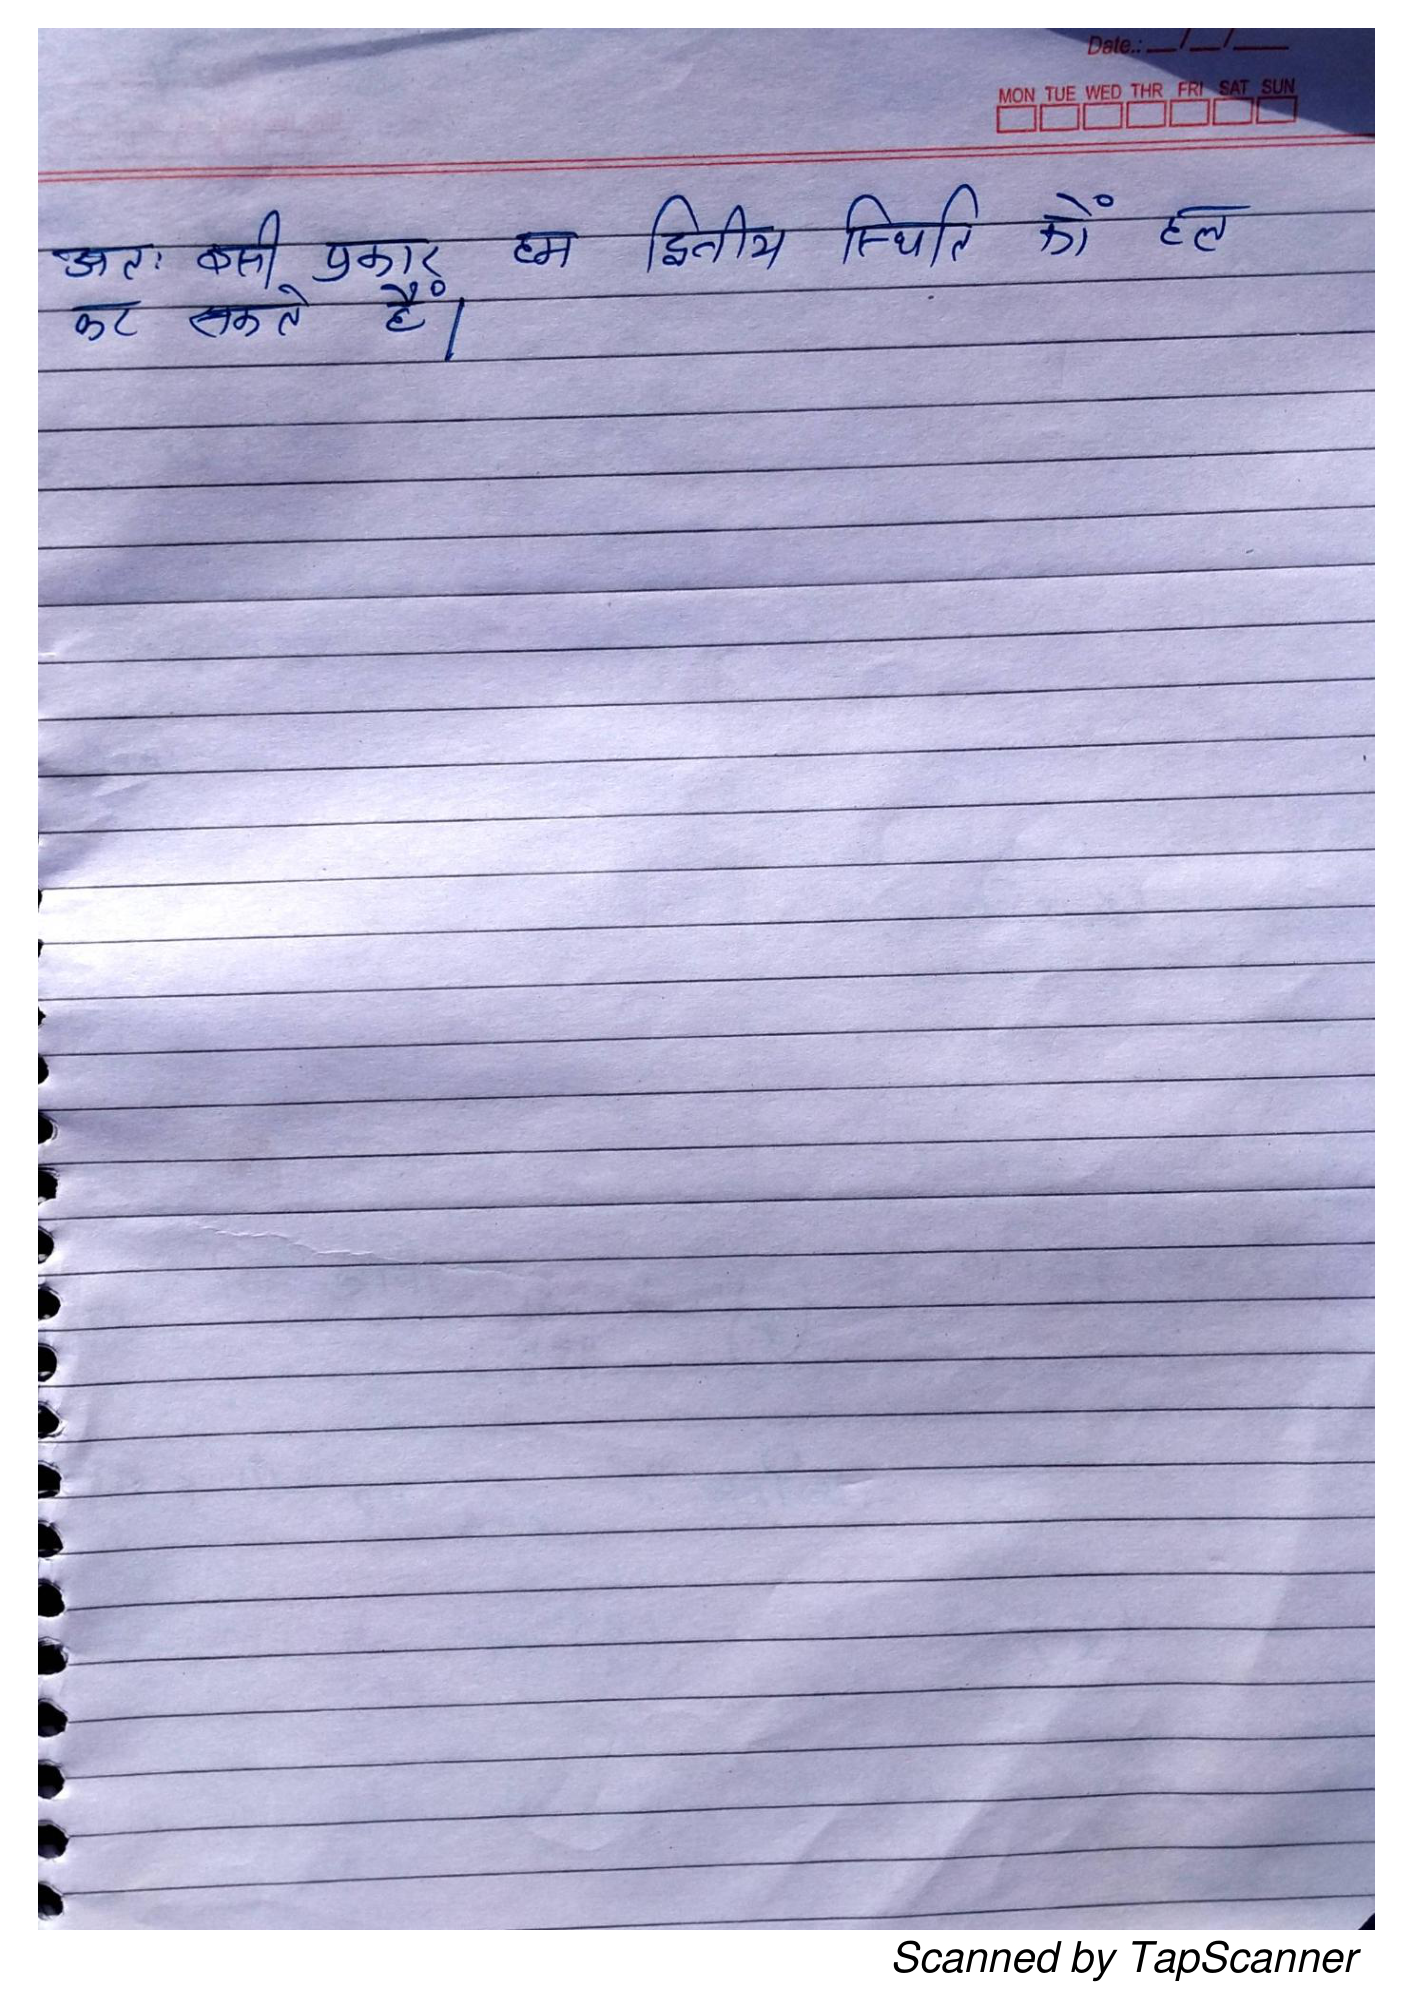 Date.: __/__/___
MON TUE WED THR FRI SAT SUN
अतः बसी प्रकार हम द्वितीय स्थिति कों हल
कर सकते हैं।
Scanned by TapScanner